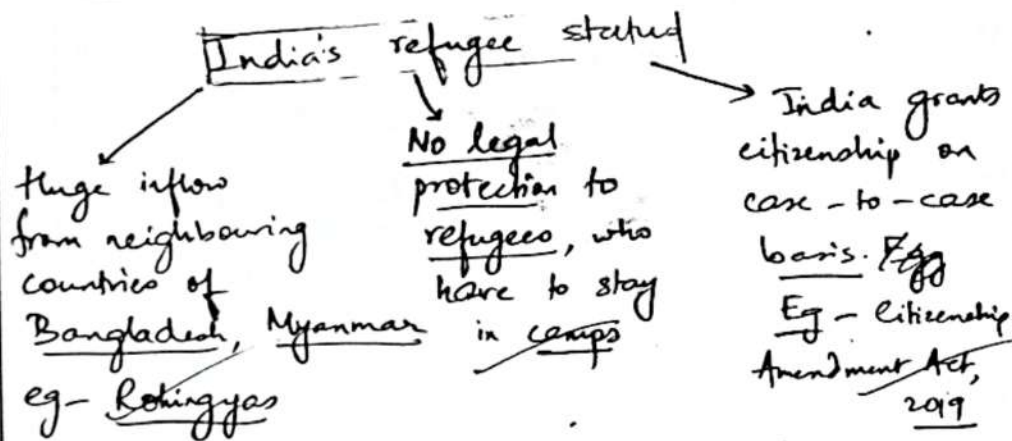 India's refugee status
Huge inflow
from neighbouring
countries of
Bangladesh, Myanmar
eg- Rohingyas
No legal
protection to
refugees, who
have to stay
in camps
India grants
citizenship on
case-to-case
basis. Egg
Eg - Citizenship
Amendment Act,
2019